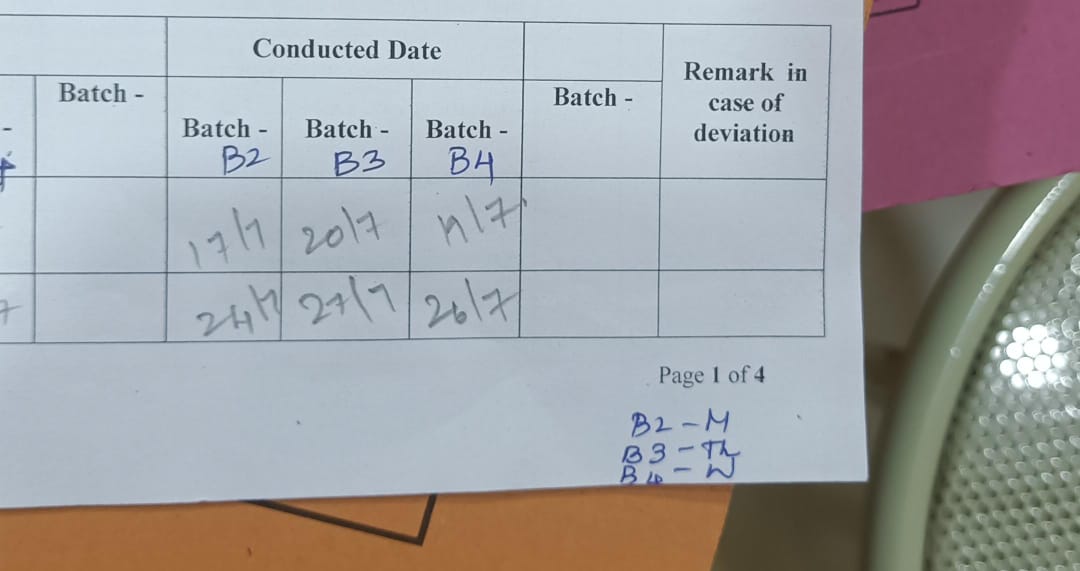 Conducted Date
Remark in case of deviation
Batch -
Batch - B2
Batch - B3
Batch - B4
Batch -
17/7 20/7
24/7 27/7 26/7
Page 1 of 4
B2 - M
B3 - Th
B4 - W